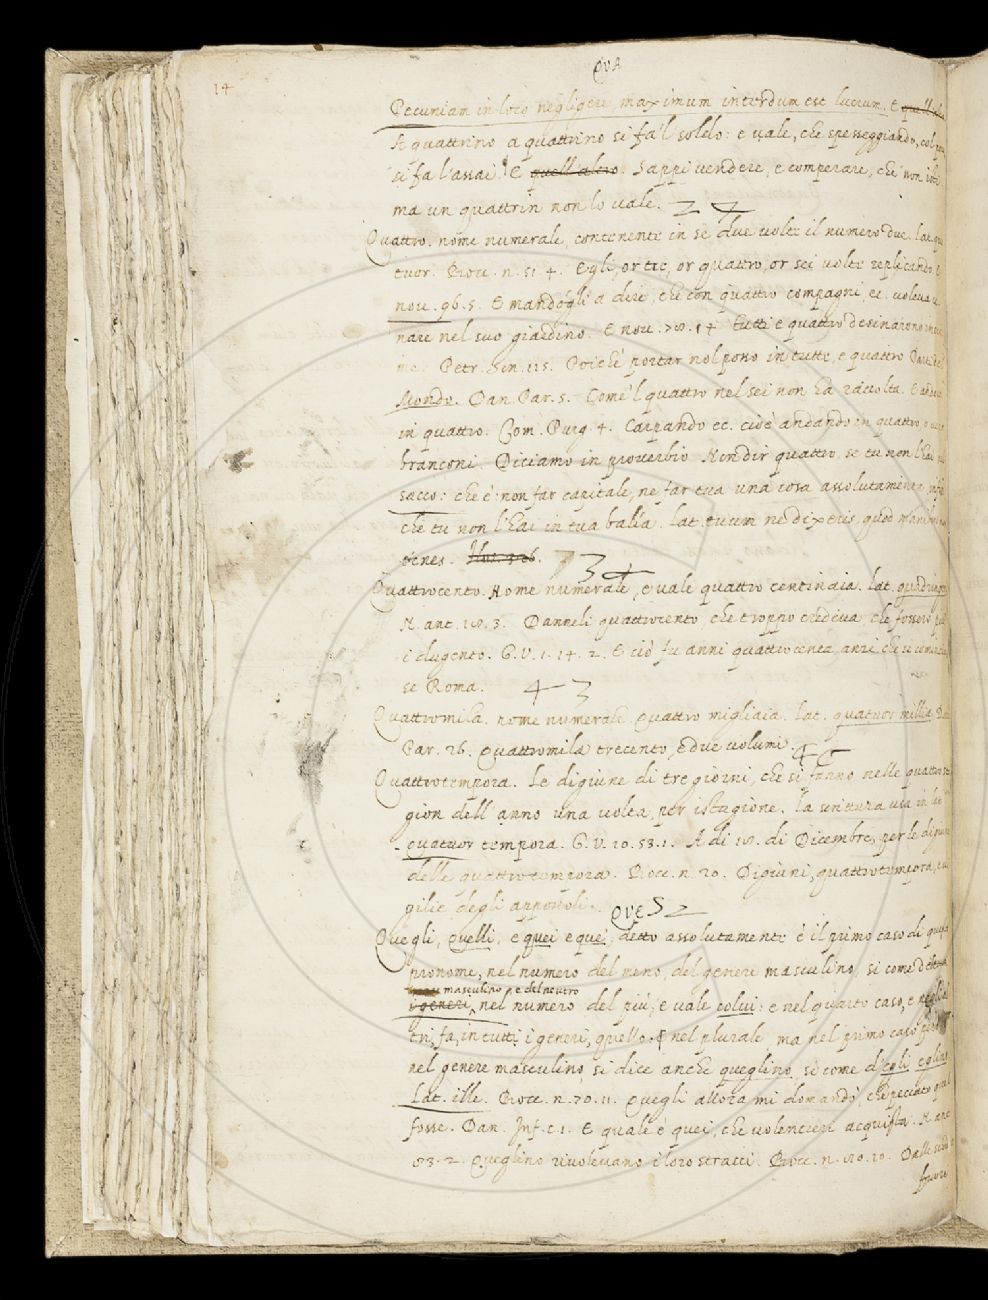 QVA
14
Pecuniam in loco negligere maximum interdum est lucrum. E quell'altro
A quattrino a quattrino si fa 'l soldo: e vale, che spesseggiando, col poco
si fa l'assai. E quell'altro. Sappi vendere, e comperare, che non
ma un quattrin non lo vale. 2 4
Quattro. nome numerale, contenente in sè due volte il numero due. Lat. qua
tuor. Bocc. n. 51. 4. Egli, or tre, or quattro, or sei volte replicando. E
nov. 96. 5. E mandogli a dire, che con quattro compagni, ec. voleva ce
nare nel suo giardino. E nov. 78. 14 tutti e quattro desinarono insie
me. Petr. Son. 115. Poichè portar nol posso in tutte, e quattro Parti del
Mondo. Dan. Par. 5. Come 'l quattro nel sei non ha raccolta. E andare
in quattro. Com. Purg. 4. Carpando ec. cioè andando in quattro, o vero
branconi. Diciamo in proverbio Non dir quattro, se tu non l'hai nel
sacco: che è: non far capitale, nè far tua una cosa assolutamente, infin
che tu non l'hai in tua balìa. Lat. tuum ne dixeris, quod manibus non
tenes. 3 4
Quattrocento. Nome numerale, e vale quattro centinaia. Lat. quadringenti
N. ant. 18. 3. Danneli quattrocento, che troppo credeva, che fossero più
i dugento. G. V. 1. 14. 2. E ciò fu anni quattrocento, anzi che si comincias
se Roma. 4 3
Quattromila. nome numerale. Quattro migliaia. Lat. quatuor millia. Dan.
Par. 26. Quattromila trecento, e due volumi.
Quattrotempora. Le digiune di tre giorni, che si fanno nelle quattro sta
gion dell'anno una volta, per istagione. La scrittura usa in lat.
quatuor tempora. G. V. 10. 58. 1. A dì 18. di Dicembre, per le digiune
delle quattrotempora. Bocc. n. 20. Digiuni, quattrotempora, e vi
gilie degli appostoli.
QVE 5 2
Quegli, quelli, e quei e que', detto assolutamente è il primo caso di questo
pronome, nel numero del meno, del genere masculino, sì come
masculino, e del neutro
i generi, nel numero del più, e vale colui: e nel quarto caso, e negli al
tri, fa, in tutti i generi, quello. E nel plurale ma nel primo caso pure
nel genere masculino, si dice anche queglino, sì come d'egli eglino
Lat. ille. Bocc. n. 70. 11. Quegli allora mi domandò, che peccato quel
fosse. Dan. Inf. c. 1. E quale è quei, che volentieri acquista. N. ant.
83. 2. Queglino rivolevano i loro stracci. Bocc. n. 80. 10. Dalle